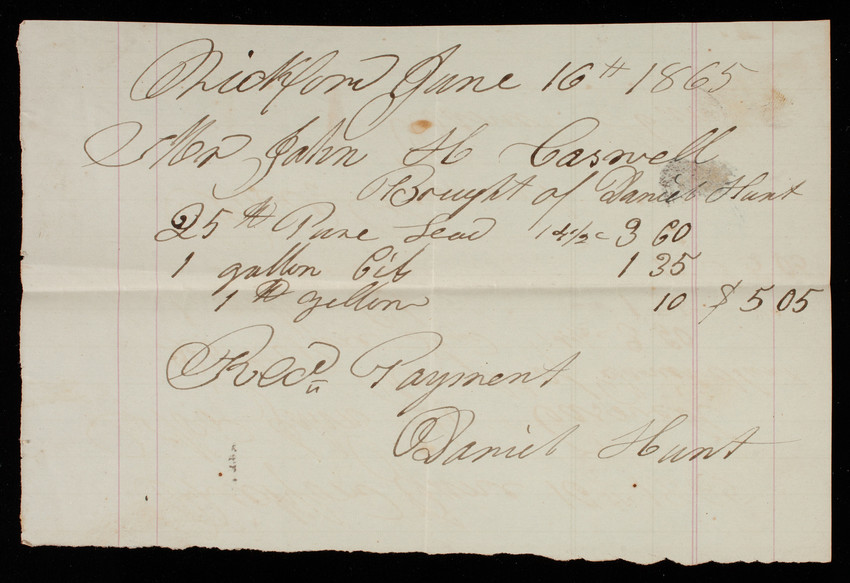 Wickford June 16th 1865
Mr John H Caswell
Bought of Daniel Hunt
25 lb Pure Lead 14½c 3 60
1 gallon Oil 1 35
1 lb yellow 10 $5 05
Recd Payment
Daniel Hunt